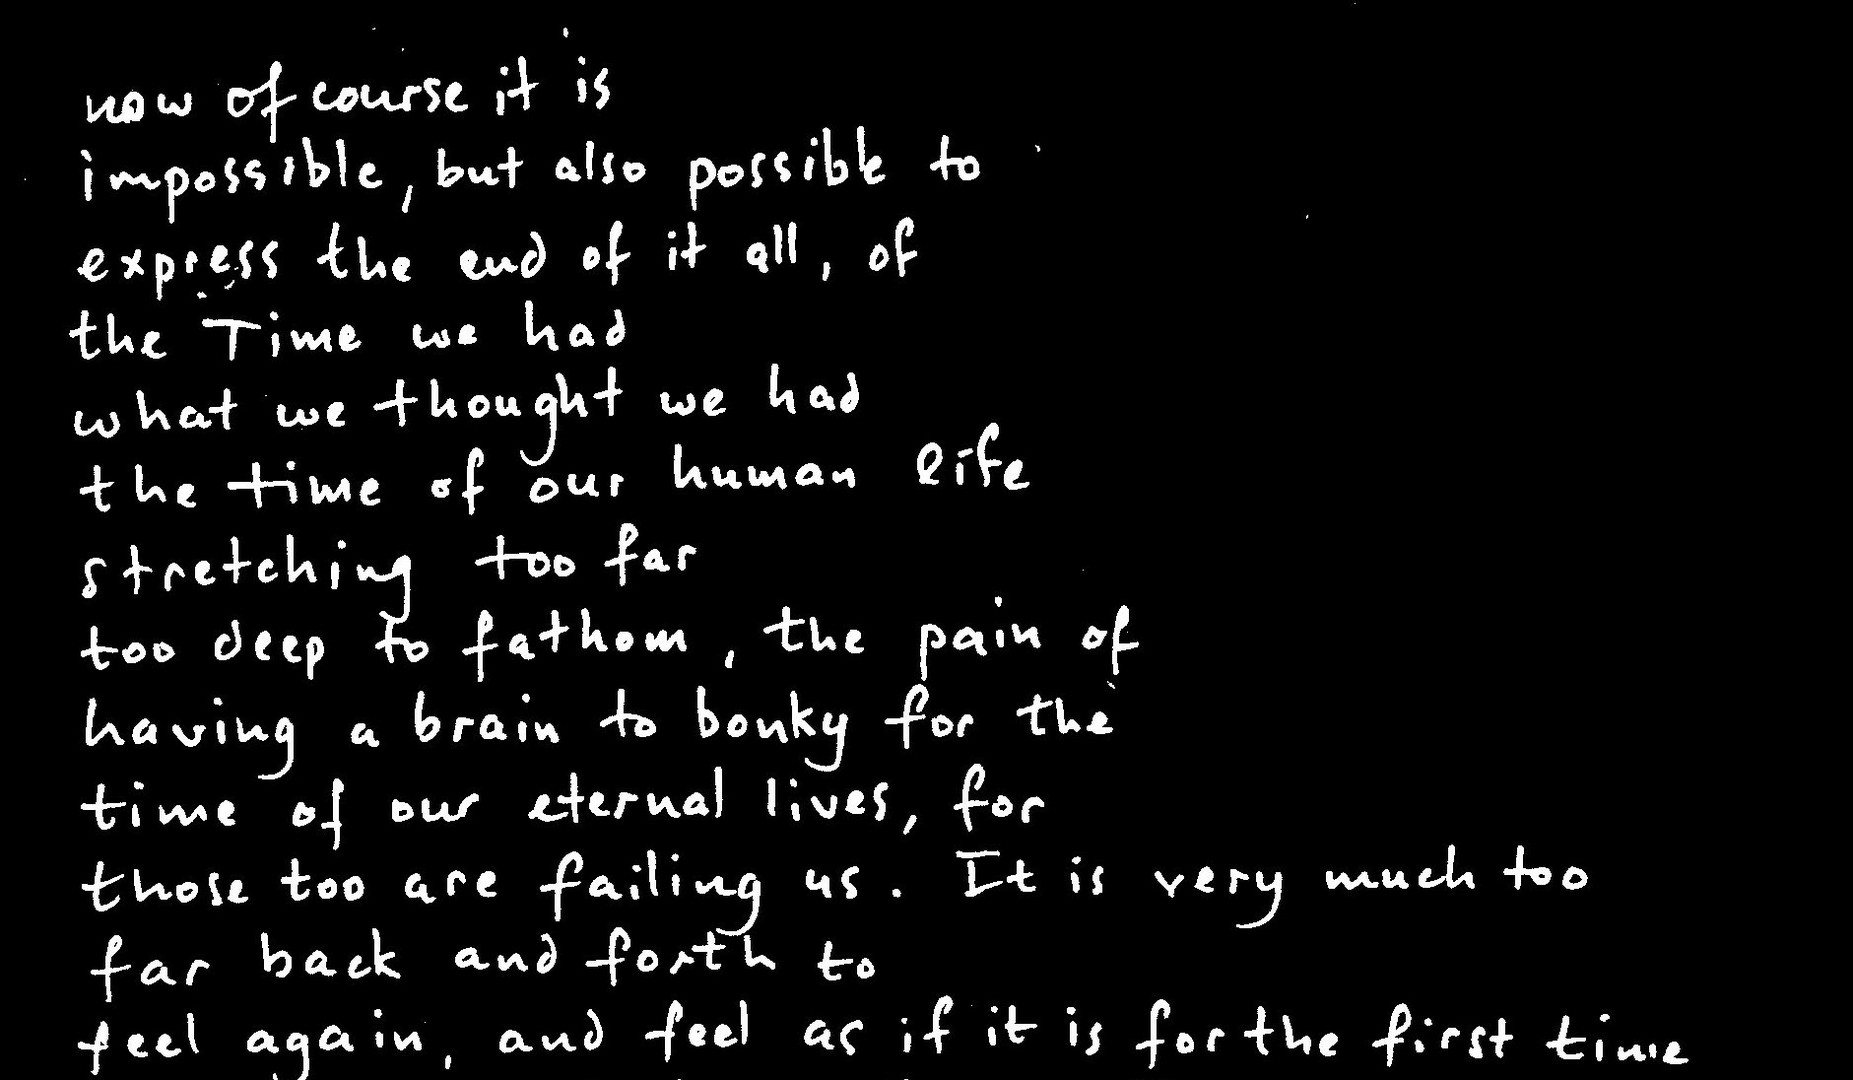 now of course it is
impossible, but also possible to
express the end of it all, of
the Time we had
what we thought we had
the time of our human life
stretching too far
too deep to fathom, the pain of
having a brain to bonky for the
time of our eternal lives, for
those too are failing us. It is very much too
far back and forth to
feel again, and feel as if it is for the first time